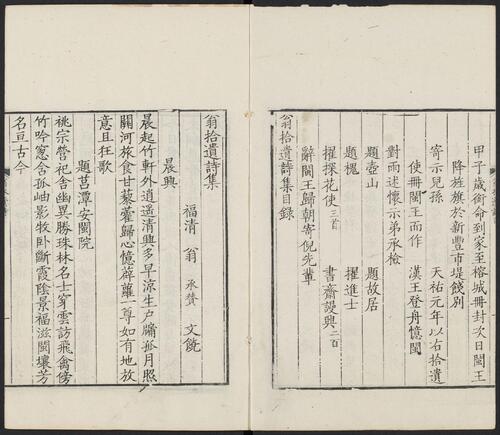 甲子歲銜命到家至榕城冊封次日閩王
降旌旗於新豐市堤餞別
寄示兒孫 天祐元年以右拾遺
使冊閩王而作 漢王登舟憶閩
對雨述懷示弟承檢
題壺山 題故居
題槐 擢進士
擢探花使三首 書齋謾興二首
辭閩王歸朝寄倪先輩
翁拾遺詩集目錄
翁拾遺詩集
福清 翁 承贊 文饒
晨興
晨起竹軒外逍遥清興多早涼生戶牖孤月照
關河旅食甘藜藿歸心憶薜蘿一尊如有地放
意且狂歌
題莒潭安閩院
祧宗營祀舍幽異勝珠林名士穿雲訪飛禽傍
竹吟窻舍孤岫影牧卧斷霞陰景福滋閩壤芳
名亘古今